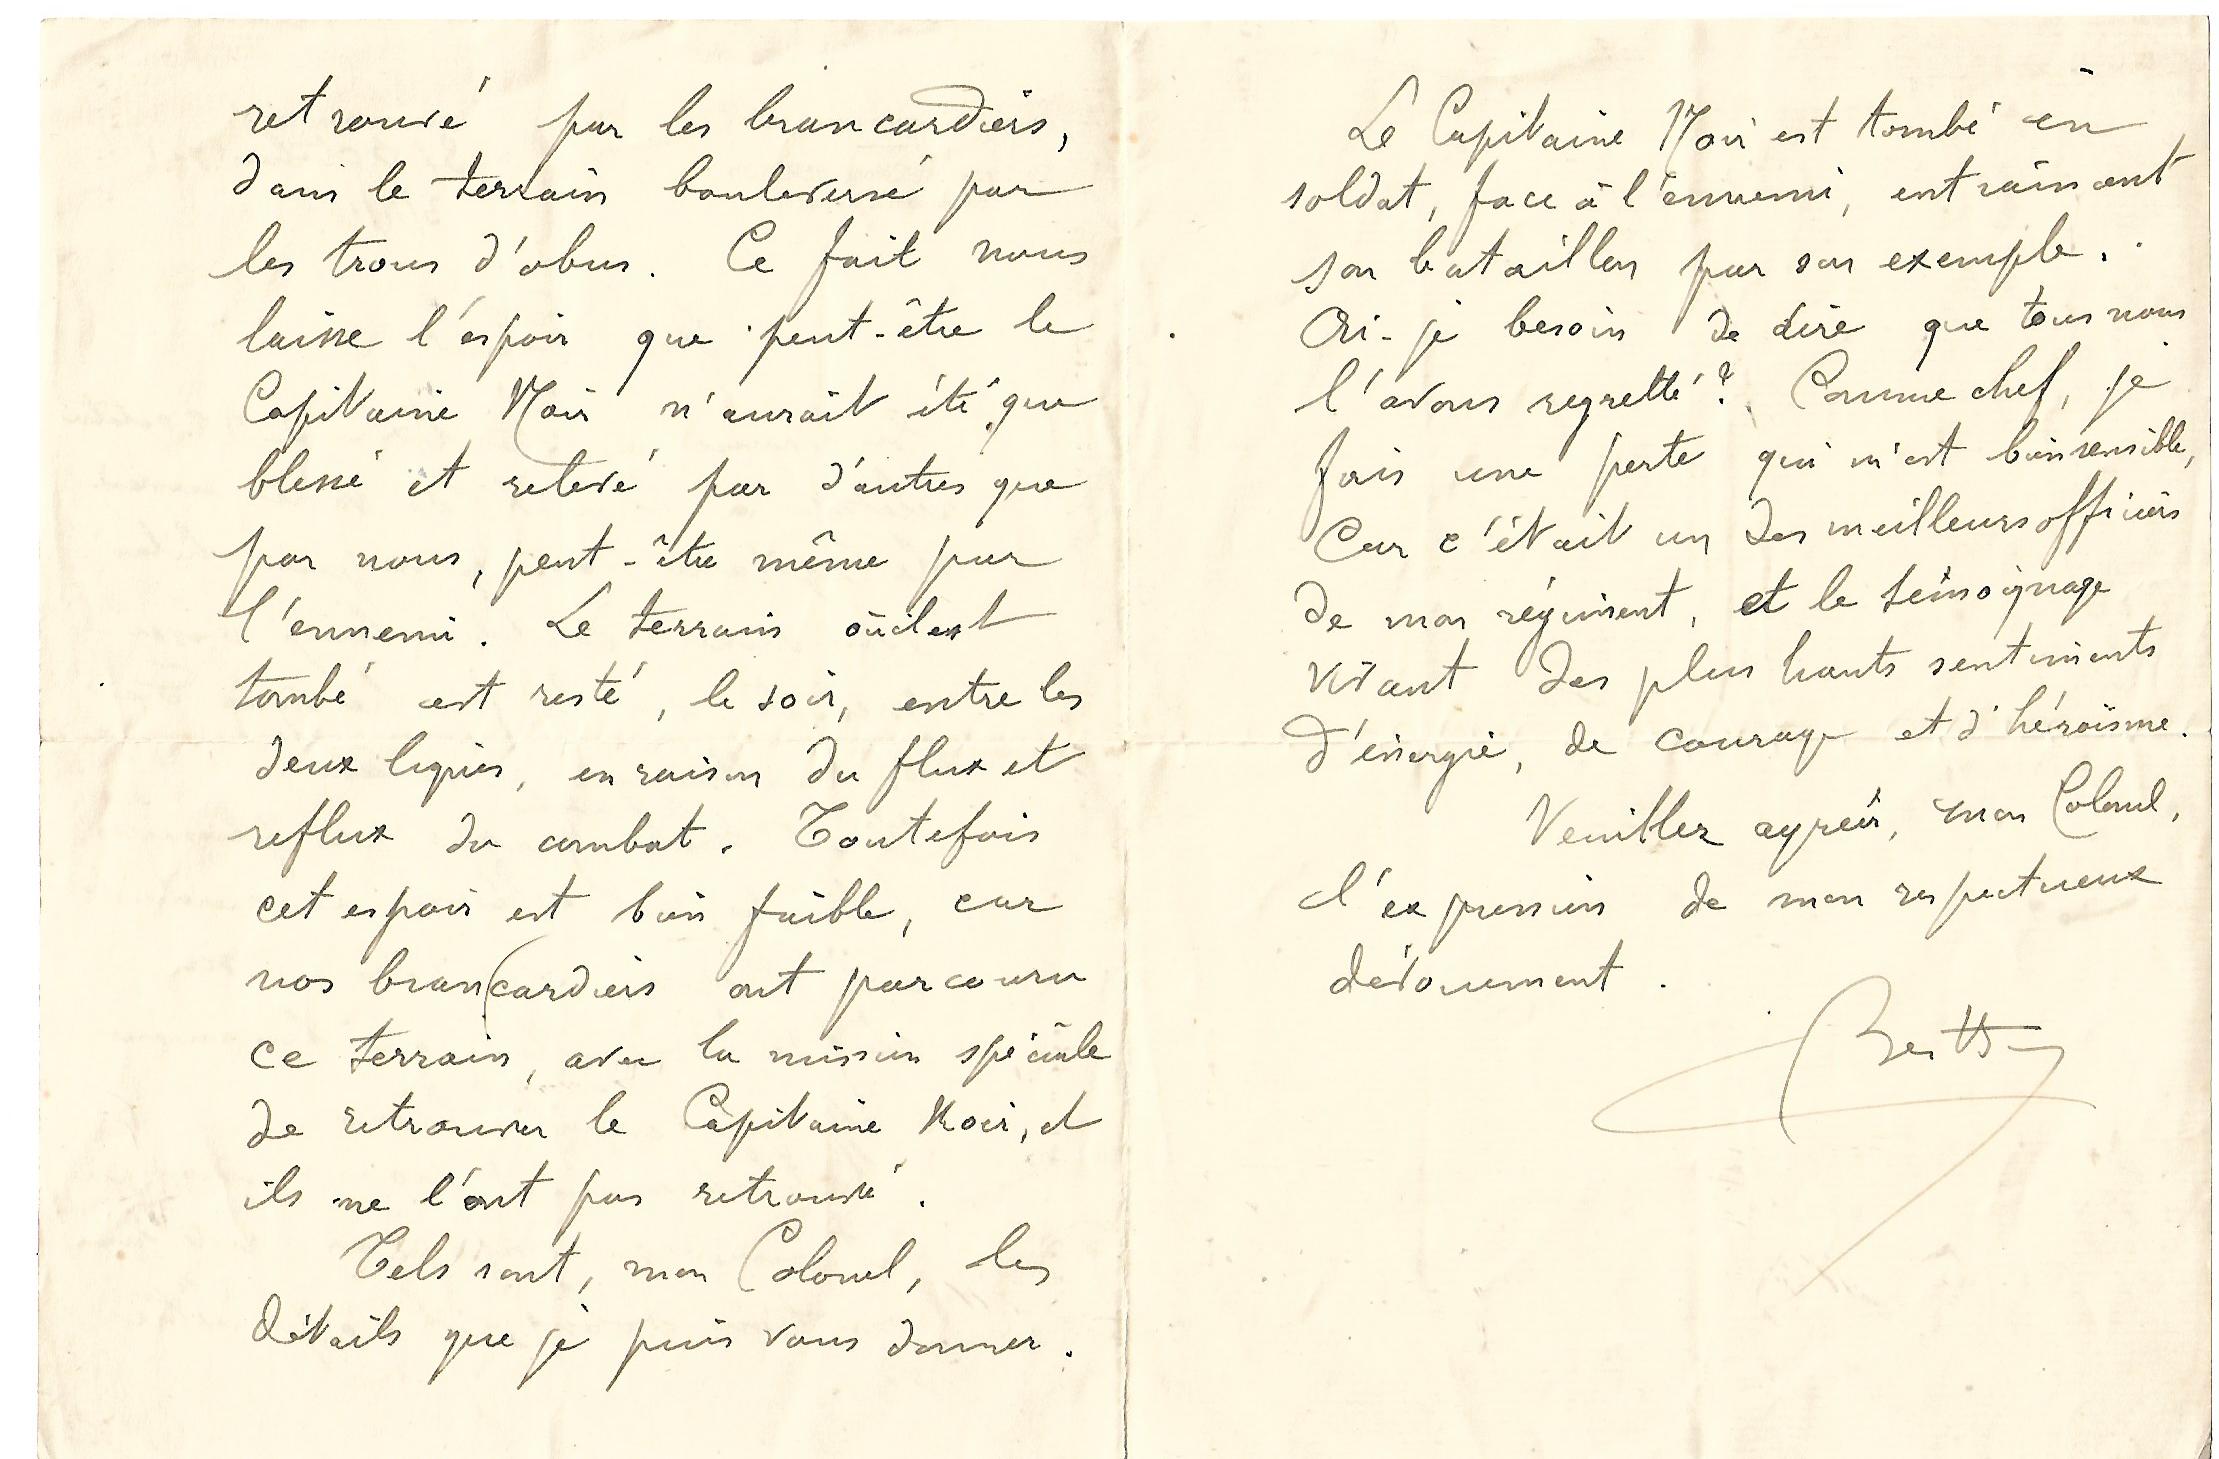 retrouvé par les brancardiers,
dans le terrain bouleversé par
les trous d'obus. Ce fait nous
laisse l'espoir que peut-être le
Capitaine Noir n'aurait été que
blessé et relevé par d'autres que
par nous, peut-être même par
l'ennemi. Le terrain où il est
tombé est resté, le soir, entre les
deux lignes, en raison du flux et
reflux du combat. Toutefois
cet espoir est bien faible, car
nos brancardiers ont parcouru
ce terrain, avec la mission spéciale
de retrouver le Capitaine Noir, et
ils ne l'ont pas retrouvé.
Tels sont, mon Colonel, les
détails que je puis vous donner.
Le Capitaine Noir est tombé en
soldat, face à l'ennemi, entraînant
son bataillon par son exemple.
Ai-je besoin de dire que tous nous
l'avons regretté? Comme chef, je
fais une perte qui m'est bien sensible,
Car c'était un des meilleurs officiers
de mon régiment, et le témoignage
vivant des plus hauts sentiments
d'énergie, de courage et d'héroïsme.
Veuillez agréer, mon Colonel,
l'expression de mon respectueux
dévouement.